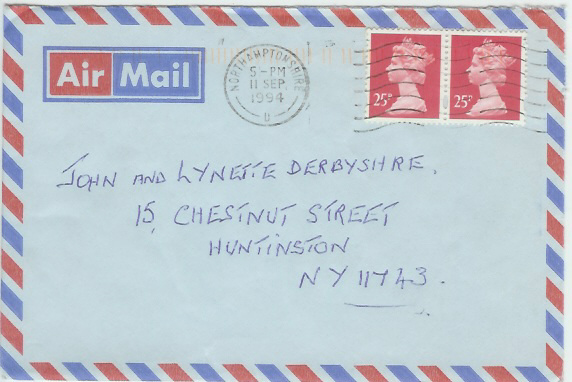 Air Mail
NORTHAMPTONSHIRE
5-PM
11 SEP.
1994
D
25P
25P
JOHN AND LYNETTE DERBYSHIRE.
15, CHESTNUT STREET
HUNTINSTON
NY 11743.